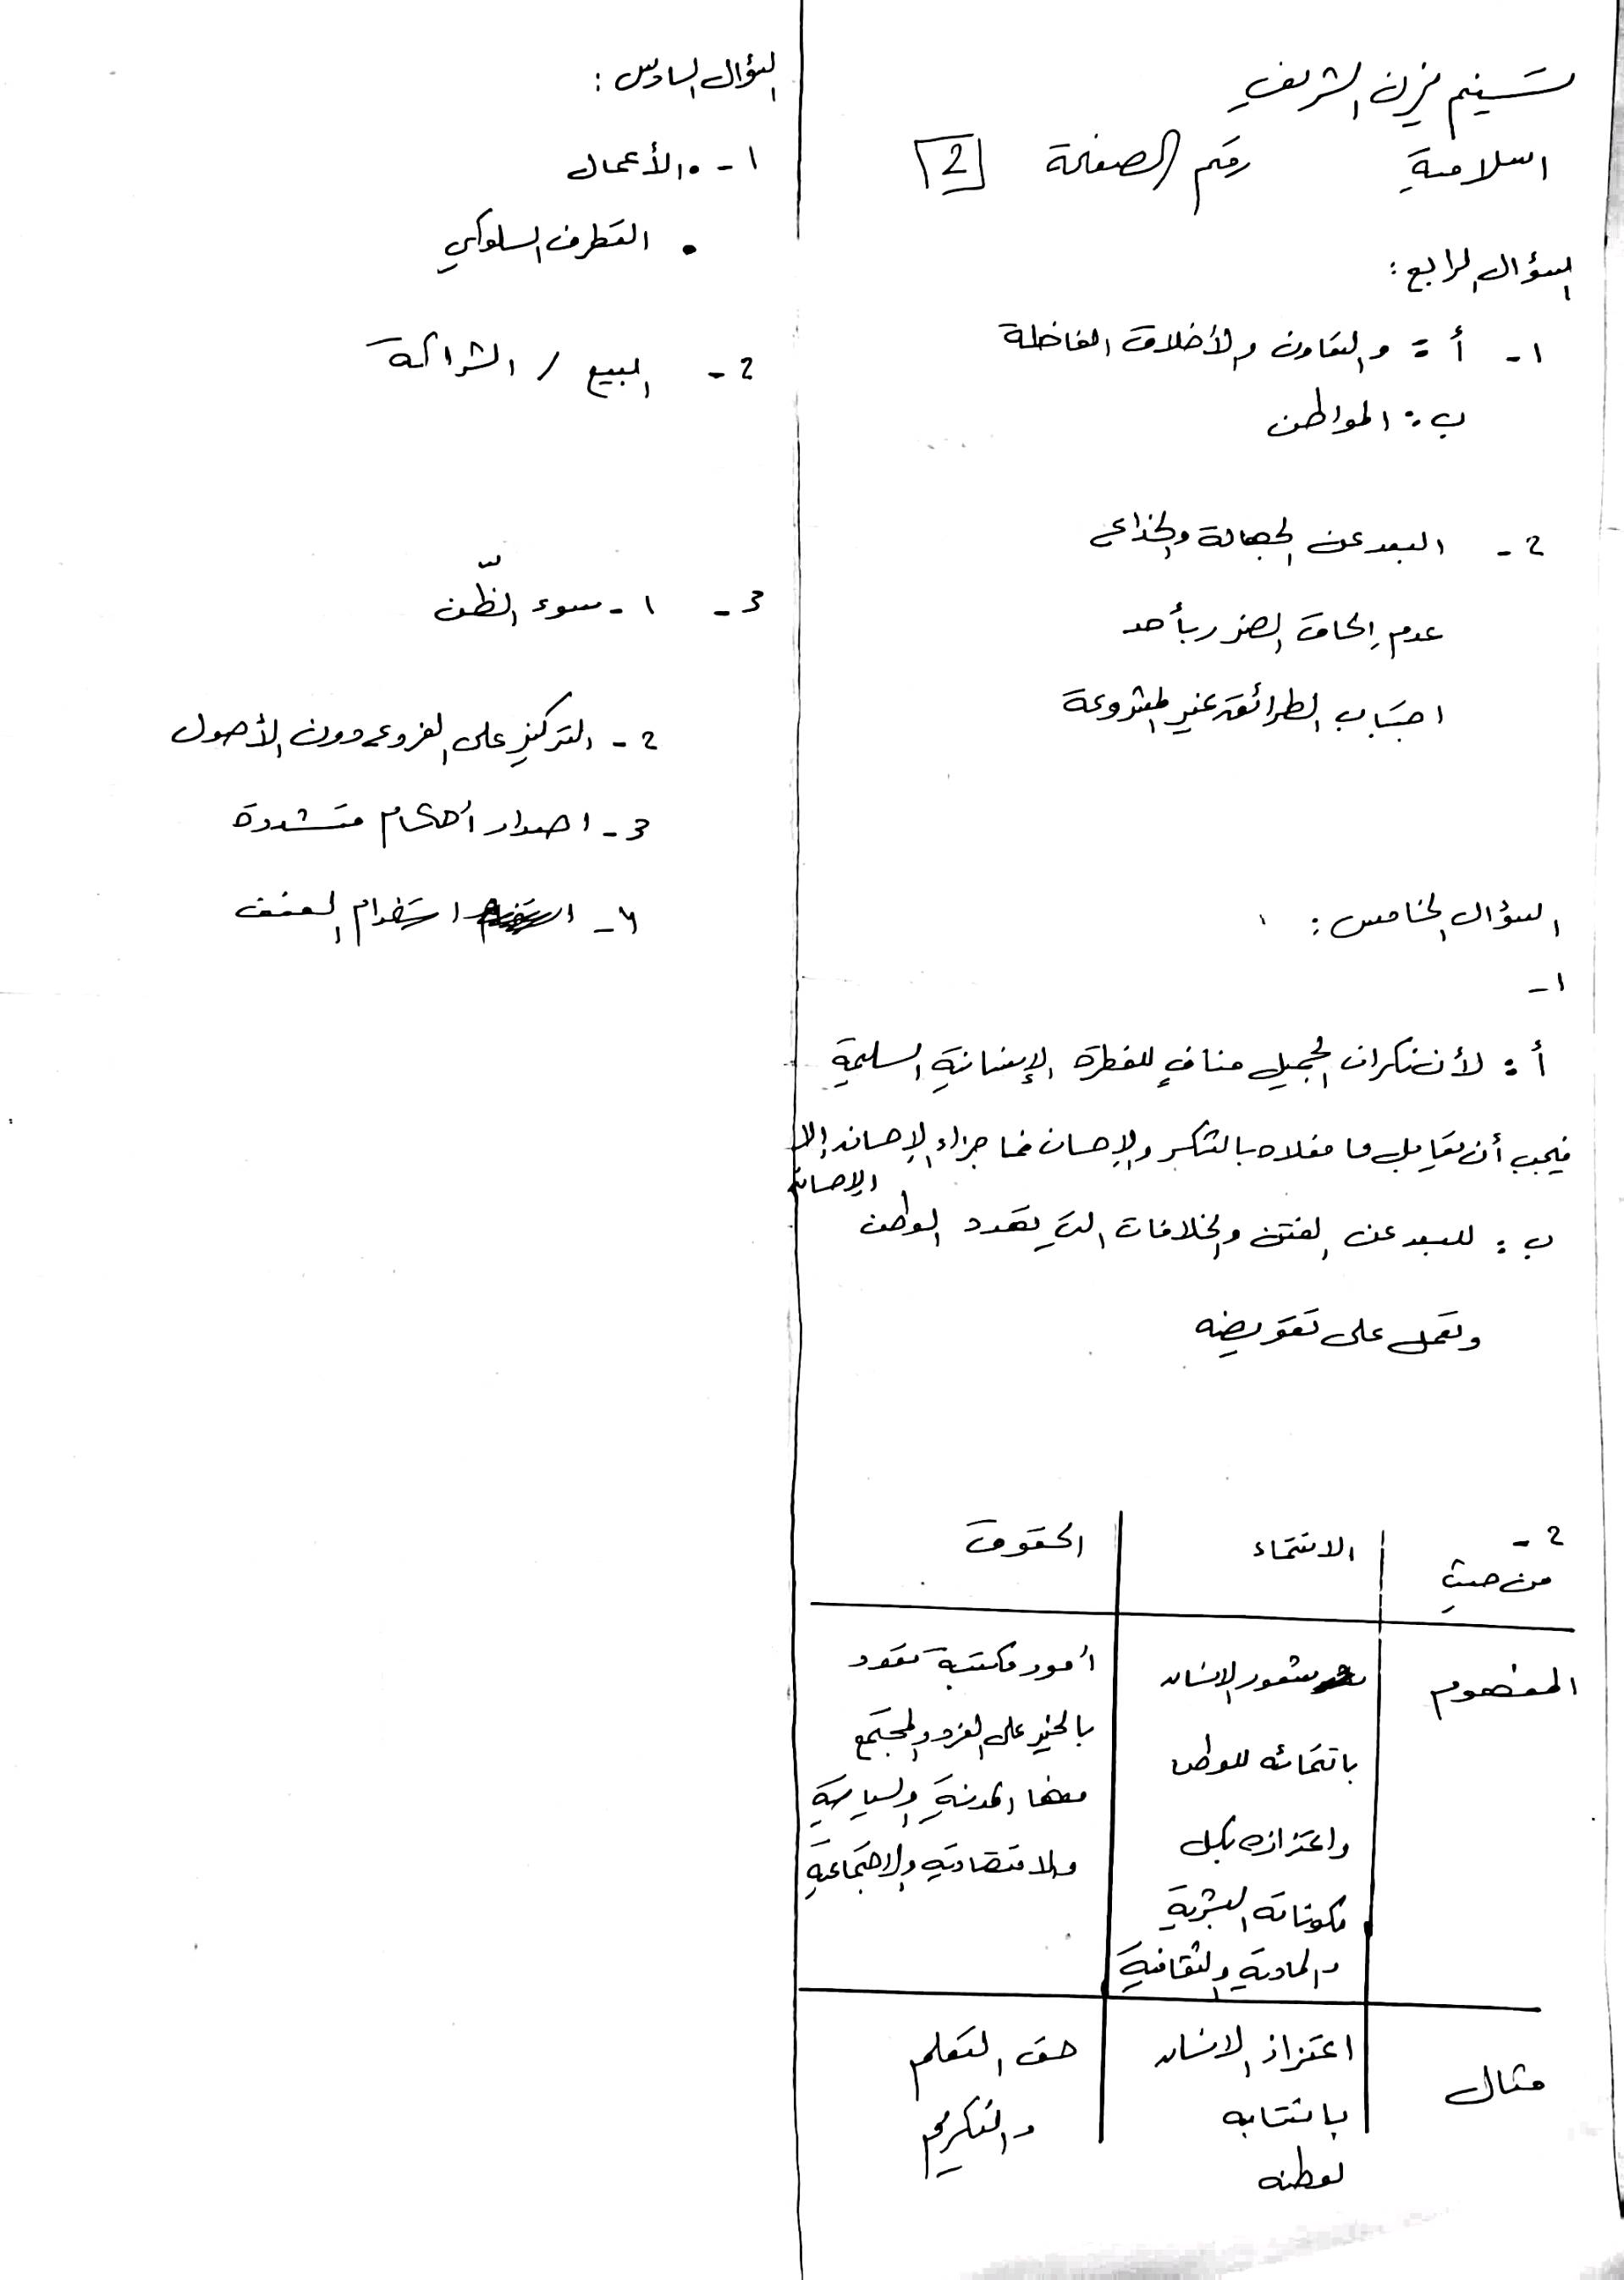 تسنيم يزن الشريف
اسلامية رقم الصفحة 2
السؤال الرابع :
1 - أ : والتعاون والأخلاق الفاضلة
ب : المواطن
2 - البعد عن الجهالة والخداع
عدم إلحاق الضرر بأحد
اجتناب الطرائق غير المشروعة
السؤال الخامس :
1 -
أ : لأن نكران الجميل منافٍ للفطرة الإنسانية السليمة
فيجب أن نقابل ما فعلاه بالشكر والإحسان فما جزاء الإحسان إلا
الإحسان
ب : للبعد عن الفتن والخلافات التي تهدد الوطن
وتعمل على تقويضه
2 -
من حيث الانتماء الحقوق
المفهوم شعور الانسان أمور مكتسبة تعود
بانتمائه للوطن بالخير على الفرد والمجتمع
واعتزازه بكل منها المدنية والسياسية
مكوناته البشرية والاقتصادية والاجتماعية
والمادية والثقافية
مثال اعتزاز الانسان حق التعلم
لوطنه والتكريم
السؤال السادس :
1 - • الأعمال
• التطرف السلوكي
2 - البيع / الشراكة
3 - 1 - سوء الظّن
2 - التركيز على الفروع دون الأصول
3 - اصدار أحكام متشددة
4 - استخدام العنف